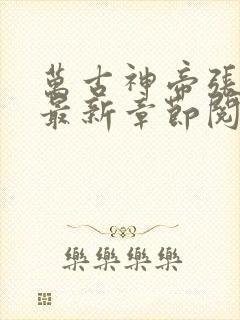 萬古神帝張
最新章節閱
樂樂樂樂